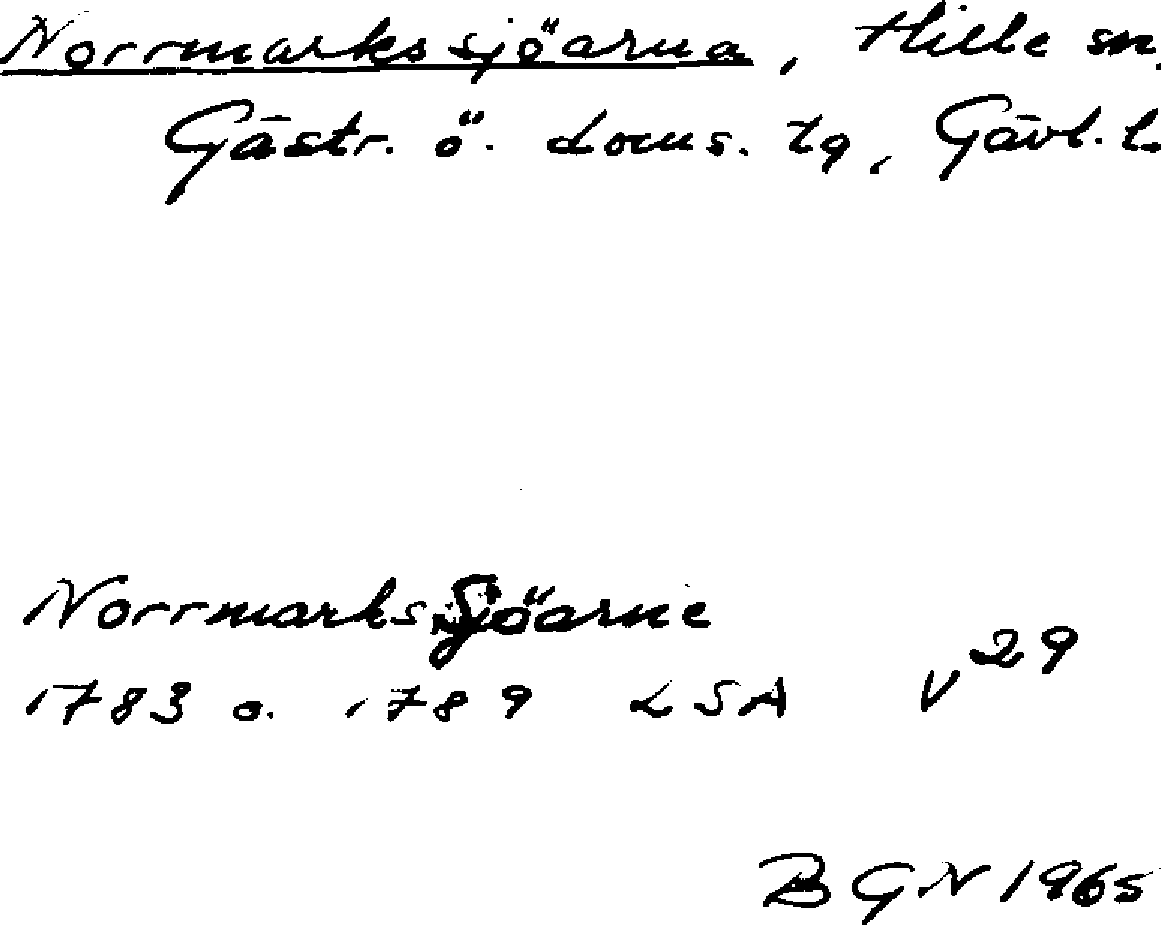 Norrmarkssjöarna, Hille sn,
Gästr. ö. doms. tg, Gävl. l.
Norrmarkssjöarne
1783 o. 1789 LSA V29
BGN 1965